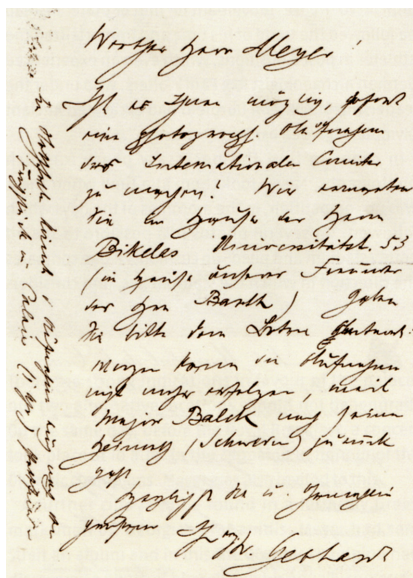 Werther Herr Meyer!
Ist es Ihnen möglich, sofort
eine photograph. Aufnahme
des Internationalen Comites
zu machen? Wir erwarten
Sie im Hause des Herrn
Bikelas Universitätst. 53
(im Hause unserer Freunde
des Hrn Barth) Geben
Sie bitte dem Boten Antwort.
Morgen kann die Aufnahme
nicht mehr erfolgen, weil
Major Balck nach seiner
Heimat (Schweden)zurück
geht
Sie u. Gemahlin
Ihr Dr. Gebhardt
Aufnahme
Frühstück im Palais (1 Uhr)